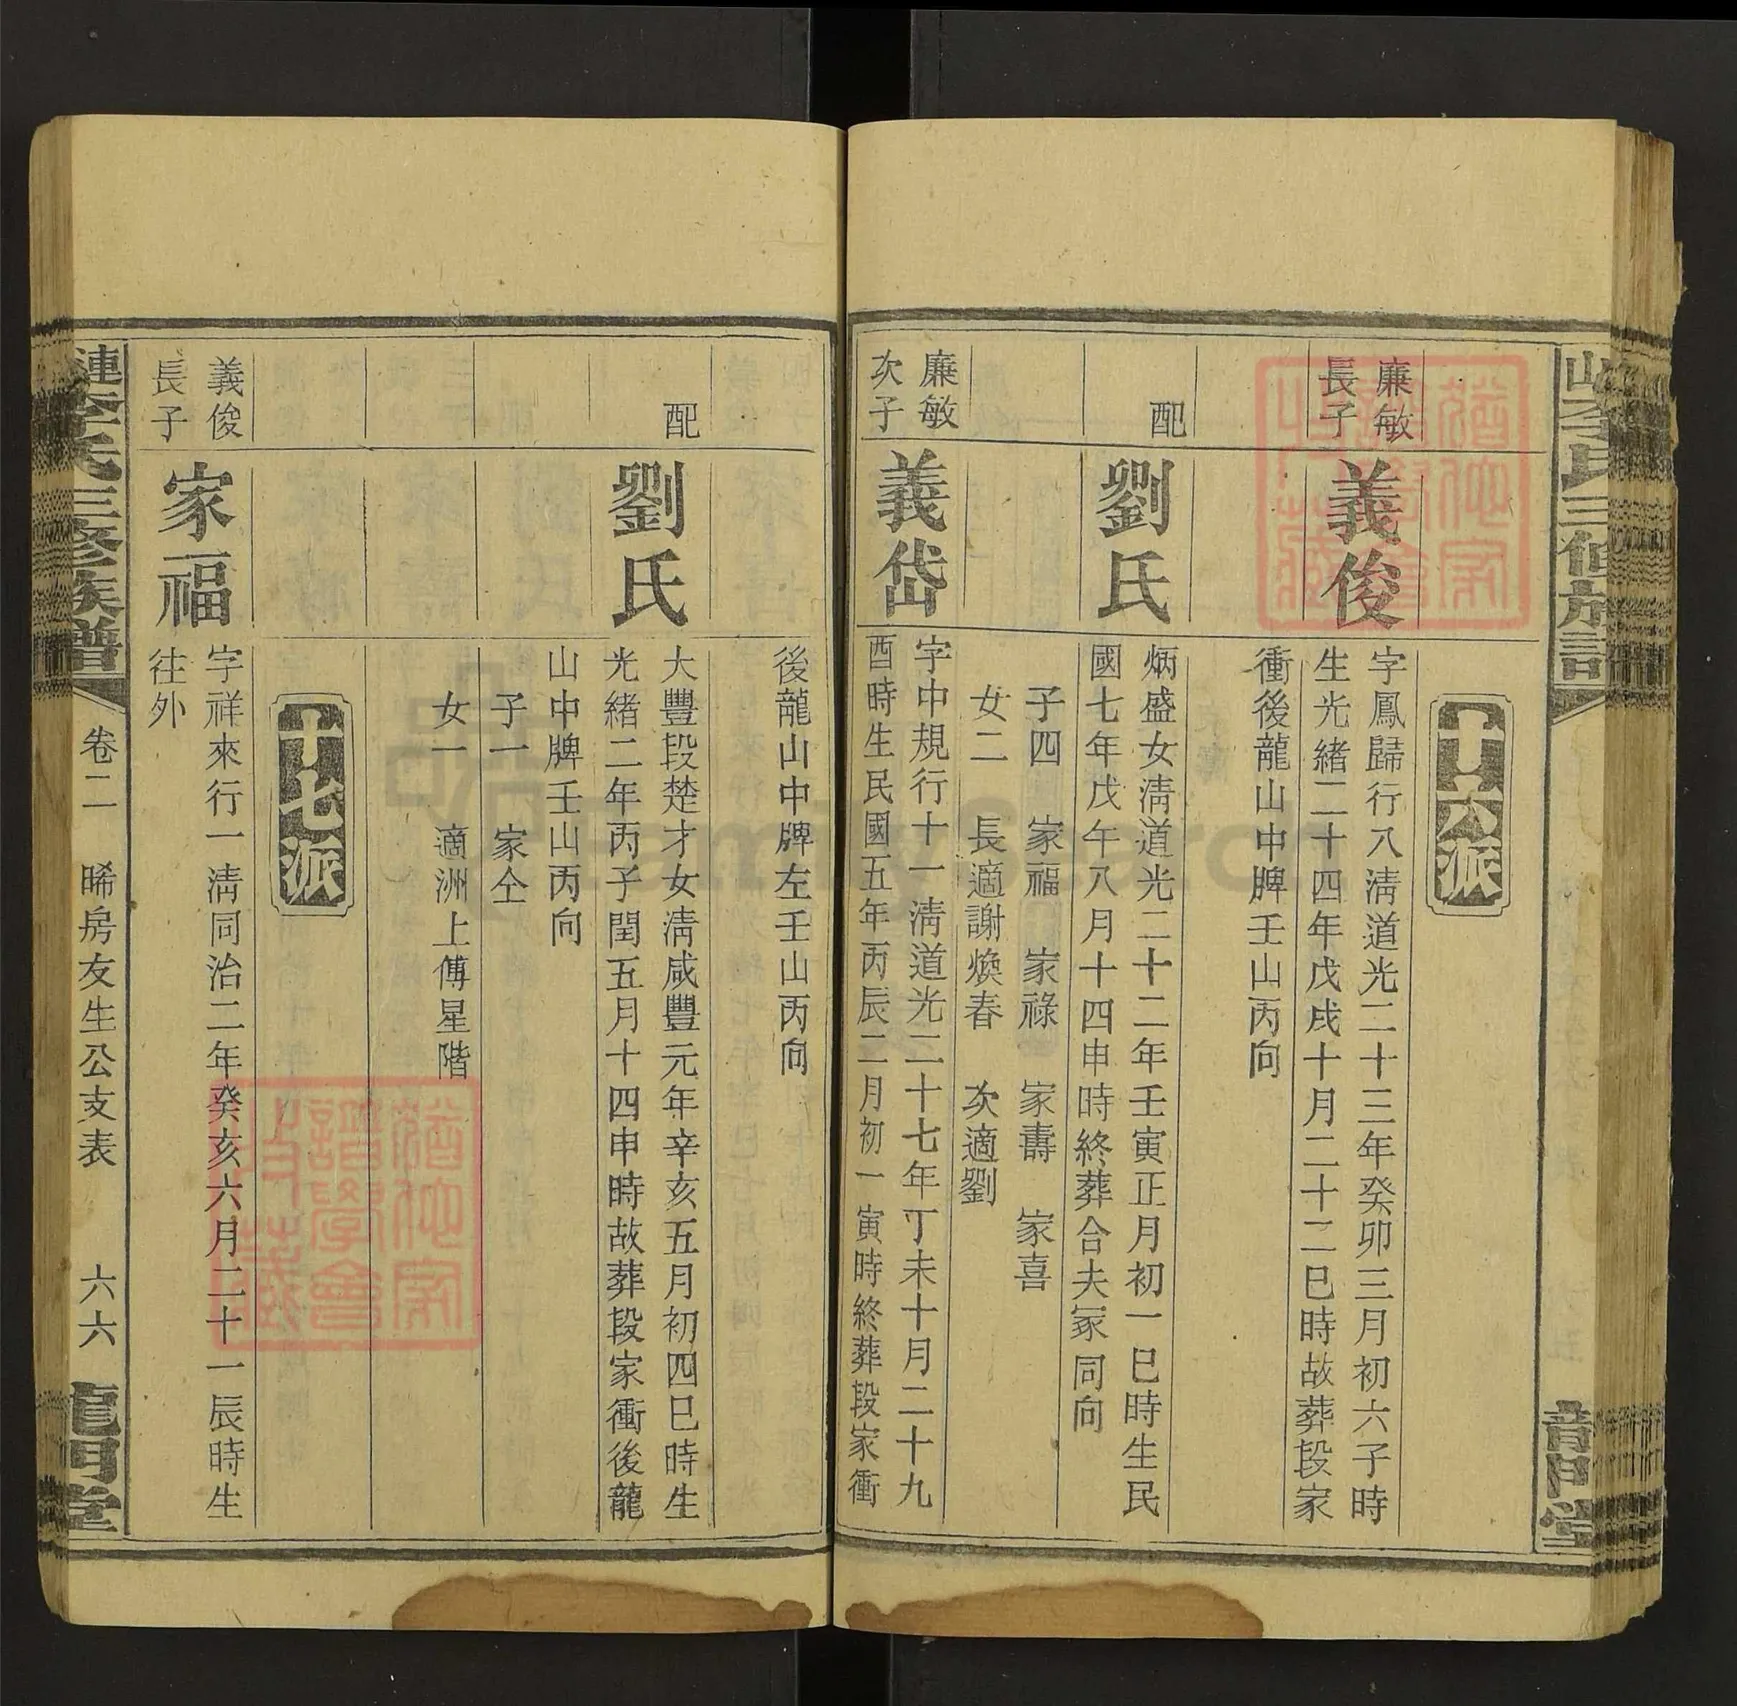 十六派
廉敏
長子
義俊
字鳳歸行八淸道光二十三年癸卯三月初六子時
生光緒二十四年戊戌十月二十二巳時故葬段家
衝後龍山中牌壬山丙向
配
劉氏
炳盛女淸道光二十二年壬寅正月初一巳時生民
國七年戊午八月十四申時終葬合夫冢同向
子四 家福 家祿 家壽 家喜
女二 長適謝煥春 次適劉
廉敏
次子
義岱
字中規行十一淸道光二十七年丁未十月二十九
酉時生民國五年丙辰二月初一寅時終葬段家衝
後龍山中牌左壬山丙向
配
劉氏
大豐段楚才女淸咸豐元年辛亥五月初四巳時生
光緒二年丙子閏五月十四申時故葬段家衝後龍
山中牌壬山丙向
子一 家仝
女一 適洲上傅星階
十七派
義俊
長子
家福
字祥來行一淸同治二年癸亥六月二十一辰時生
往外
漣李氏三修族譜
卷二 晞房友生公支表 六六
龍門堂